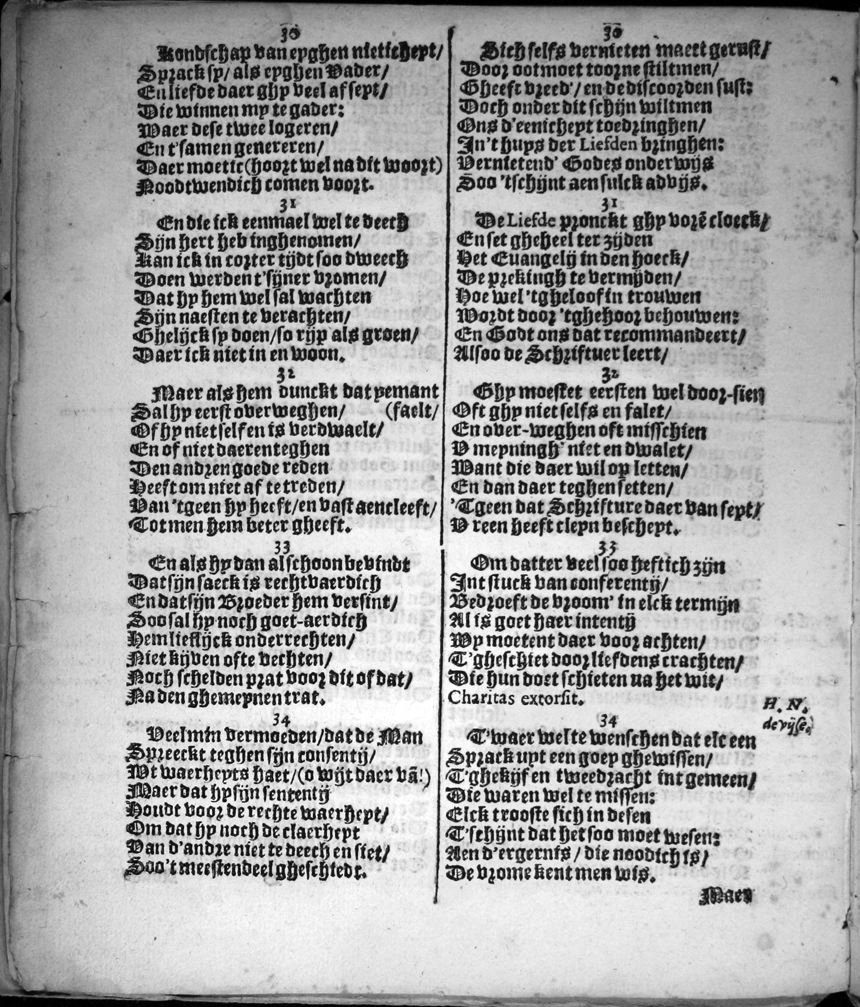 30
Kondschap van eyghen nieticheyt/
Sprack sy/ als eyghen Vader/
En liefde daer ghy veel af sept/
Die winnen my te gader:
Waer dese twee logeren/
En t'samen genereren/
Daer moetic (hoort wel na dit woort)
Noodtwendich comen voort.
31
En die ick eenmael wel te deech
Sijn hert heb inghenomen/
Kan ick in corter tijdt soo dweech
Doen werden t'sijner vromen/
Dat hy hem wel sal wachten
Sijn naesten te verachten/
Ghelijck sy doen/ so rijp als groen/
Daer ick niet in en woon.
32
Maer als hem dunckt dat yemant
Sal hy eerst overweghen/ (faelt/
Of hy niet self en is verdwaelt/
En of niet daerenteghen
Den andren goede reden
Heeft om niet af te treden/
Van 'tgeen hy heeft/ en vast aencleeft/
Tot men hem beter gheeft.
33
En als hy dan alschoon bevindt
Dat sijn saeck is rechtvaerdich
En dat sijn Broeder hem versint/
Soo sal hy noch goet-aerdich
Hem lieflijck onderrechten/
Niet kijven ofte vechten/
Noch schelden prat voor dit of dat/
Na den ghemeynen trat.
34
Veel min vermoeden/ dat de Man
Spreeckt teghen sijn consentij/
Wt waerheyts haet/ (o wijt daer vã!)
Maer dat hy sijn sententij
Houdt voor de rechte waerheyt/
Om dat hy noch de claerheyt
Van d'andre niet te deech en siet/
Soo't meestendeel gheschiedt.
30
Sich selfs vernieten maect gerust/
Door ootmoet toorne stiltmen/
Gheeft vreed'/ en de discoorden sust:
Doch onder dit schijn wiltmen
Ons d'eenicheyt toedringhen/
In't huys der Liefden bringhen:
Vernietend' Godes onderwijs
Soo 'tschijnt aen sulck advijs.
31
De Liefde pronckt ghy vorẽ cloeck/
En set gheheel ter zijden
Het Euangelij in den hoeck/
De prekingh te vermijden/
Hoe wel 'tgheloof in trouwen
Wordt door 'tghehoor behouwen:
En Godt ons dat recommandeert/
Alsoo de Schriftuer leert/
32
Ghy moestet eersten wel door-sien
Oft ghy niet selfs en falet/
En over-weghen oft misschien
V meyningh' niet en dwalet/
Want die daer wil op letten/
En dan daer teghen setten/
'Tgeen dat Schrifture daer van seyt/
V reen heeft cleyn bescheyt.
33
Om datter veel soo heftich zijn
Int stuck van conferentij/
Bedroeft de vroom' in elck termijn
Al is goet haer intentij
Wy moetent daer voor achten/
T'gheschiet door liefdens crachten/
Die hun doet schieten na het wit/
Charitas extorsit.
H. N.
devijse.
34
T'waer wel te wenschen dat elc een
Sprack uyt een goey ghewissen/
T'ghekijf en tweedracht int gemeen/
Die waren wel te missen:
Elck trooste sich in desen
T'schijnt dat het soo moet wesen:
Aen d'ergernis/ die noodich is/
De vrome kent men wis.
Maer